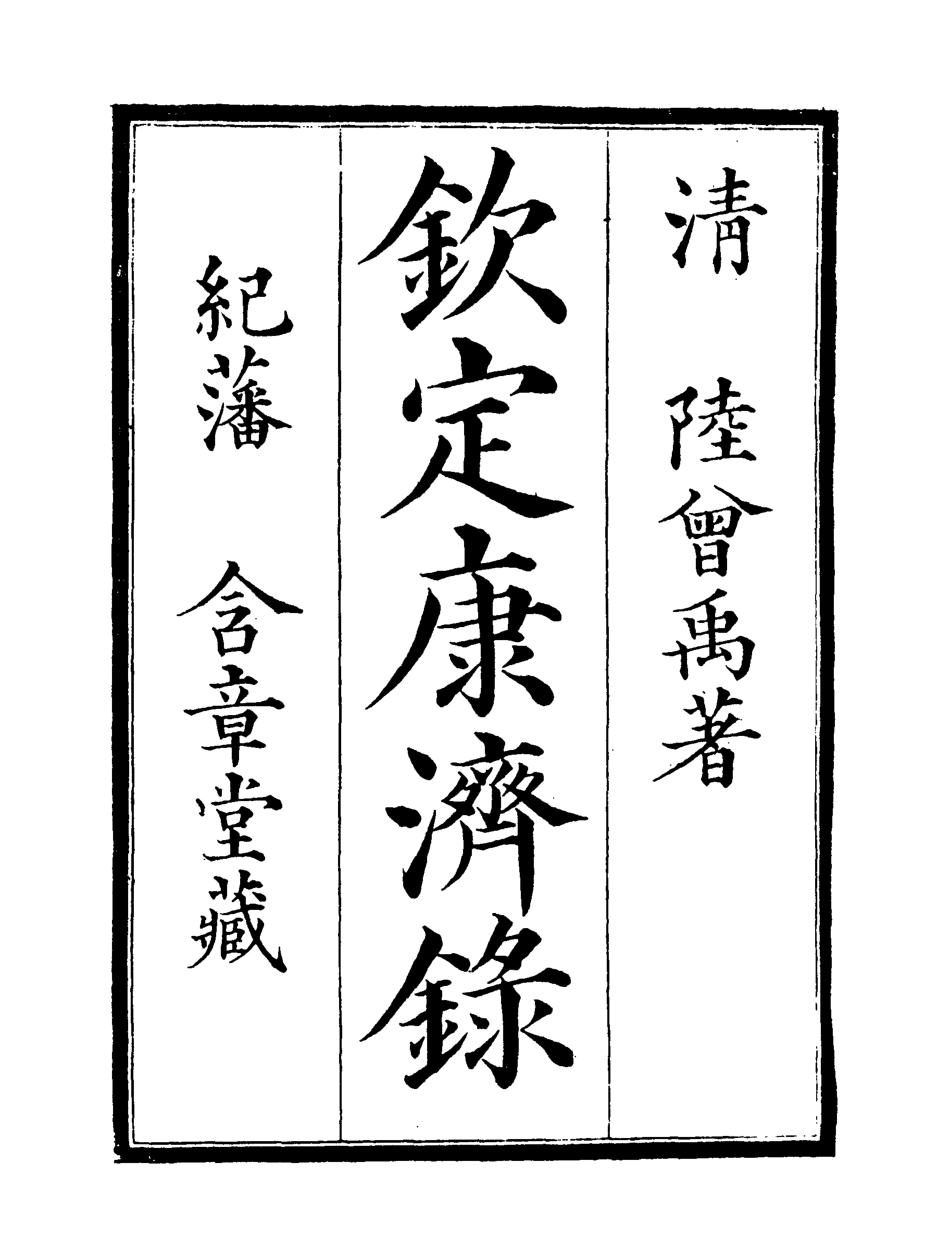 清 陸曾禹著
欽定康濟錄
紀藩 含章堂藏